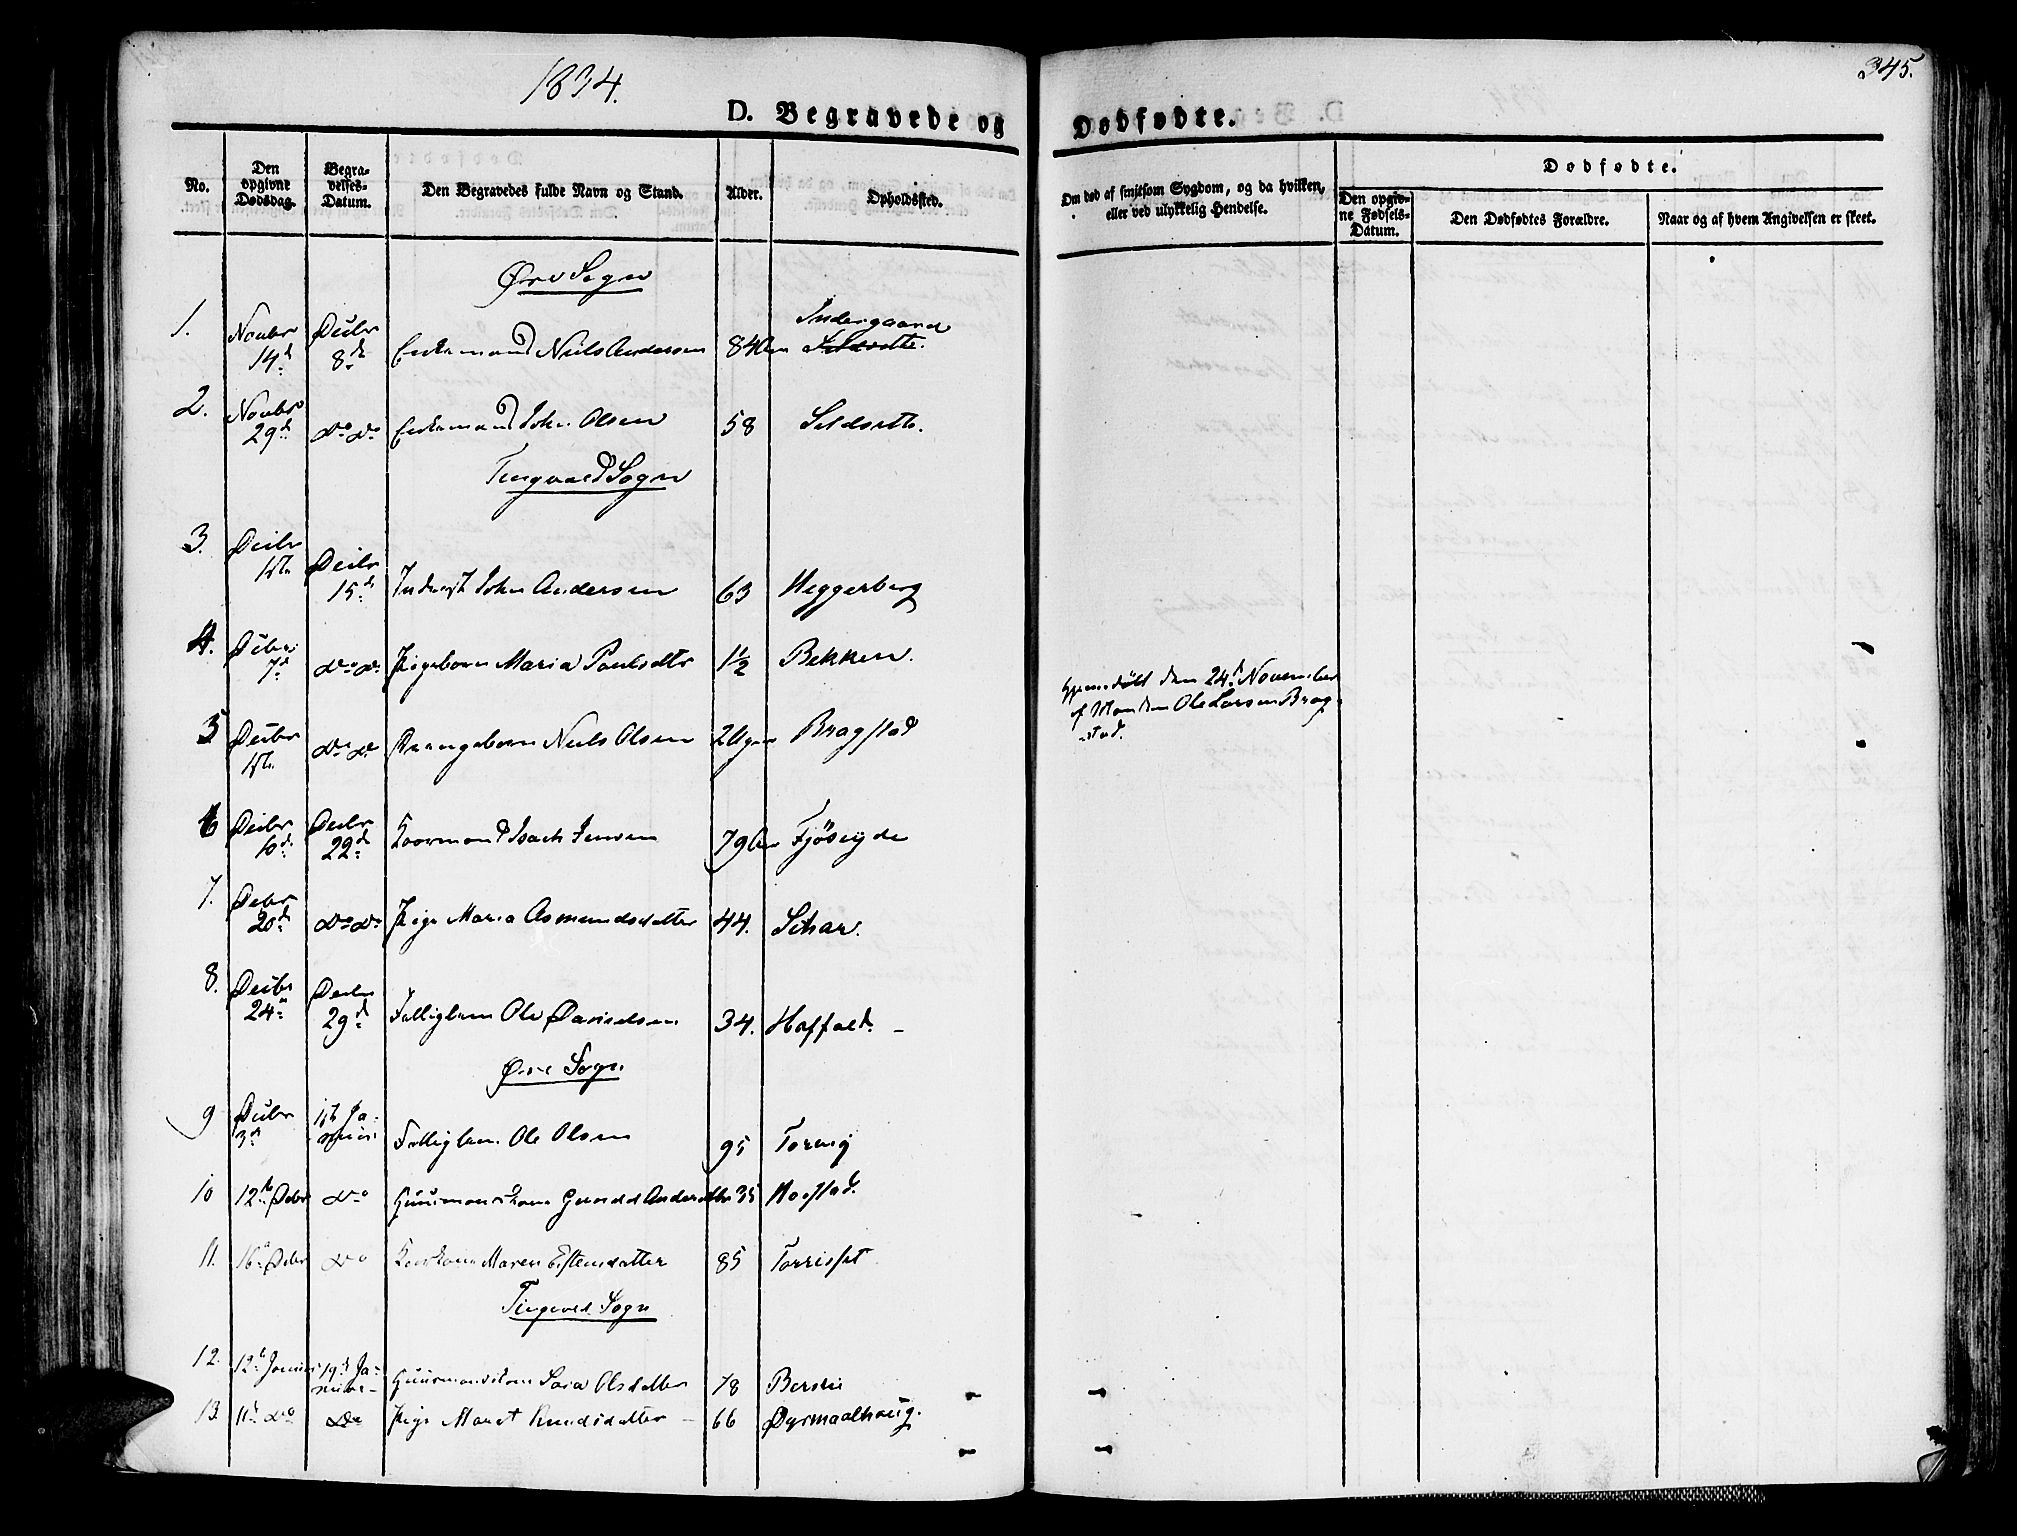 1834.
345.
D. Begravede og Dødfødte.
No.
Den opgivne Dødsdag.
Begravelses-Datum.
Den Begravedes fulde Navn og Stand.
Alder.
Opholdssted.
Om død af smitsom Sygdom, og da hvilken, eller ved ulykkelig Hendelse.
Dødfødte.
Den opgivne Fødsels-Datum.
Den Dødfødtes Forældre.
Naar og af hvem Angivelsen er skeet.
Øre Sogn
1. Novbr 14d Decbr 8de Enkemand Niels Andersen 84 Indergaard
2. Novbr 29d do do Enkemand John Olsen 58 Seldsette.
Tingvold Sogn
3. Decbr 1ste Decbr 15de Inderst John Andersen 63 Heggerberg
4. Decbr 7d do do Pigebarn Maria Poulsdtr 1½ Bekken.
5 Decbr 1ste do do Drengebarn Niels Olsen 2 Uger Bragstad
Hjemmedøbt den 24d November
af Manden Ole Larsen Brag-
stad.
6 Decbr 10d Decbr 22d Isach Jensen 79 Fjøseyde
7. Decbr 20d do do Pige Maria Asmundsdatter 44. Setzar.
8. Decbr 24 Decbr 29d Fattiglem Ole Danielsen 34. Hoffald.
Øre Sogn
9 Decbr 3d 1ste Januar Fattiglem Ole Olsen 95 Torvig
10 12te Decbr do Gaardmandskone Andersdtr 35 Horstad.
11. 16d Decbr do Maren Estensdatter 85 Torrisset
Tingvold Sogn
12. 12te Januar 19d Januar Sara Olsdatter 78
13. 11te do do Pige Maret Knudsdatter 66 Dyrmaalhaug.